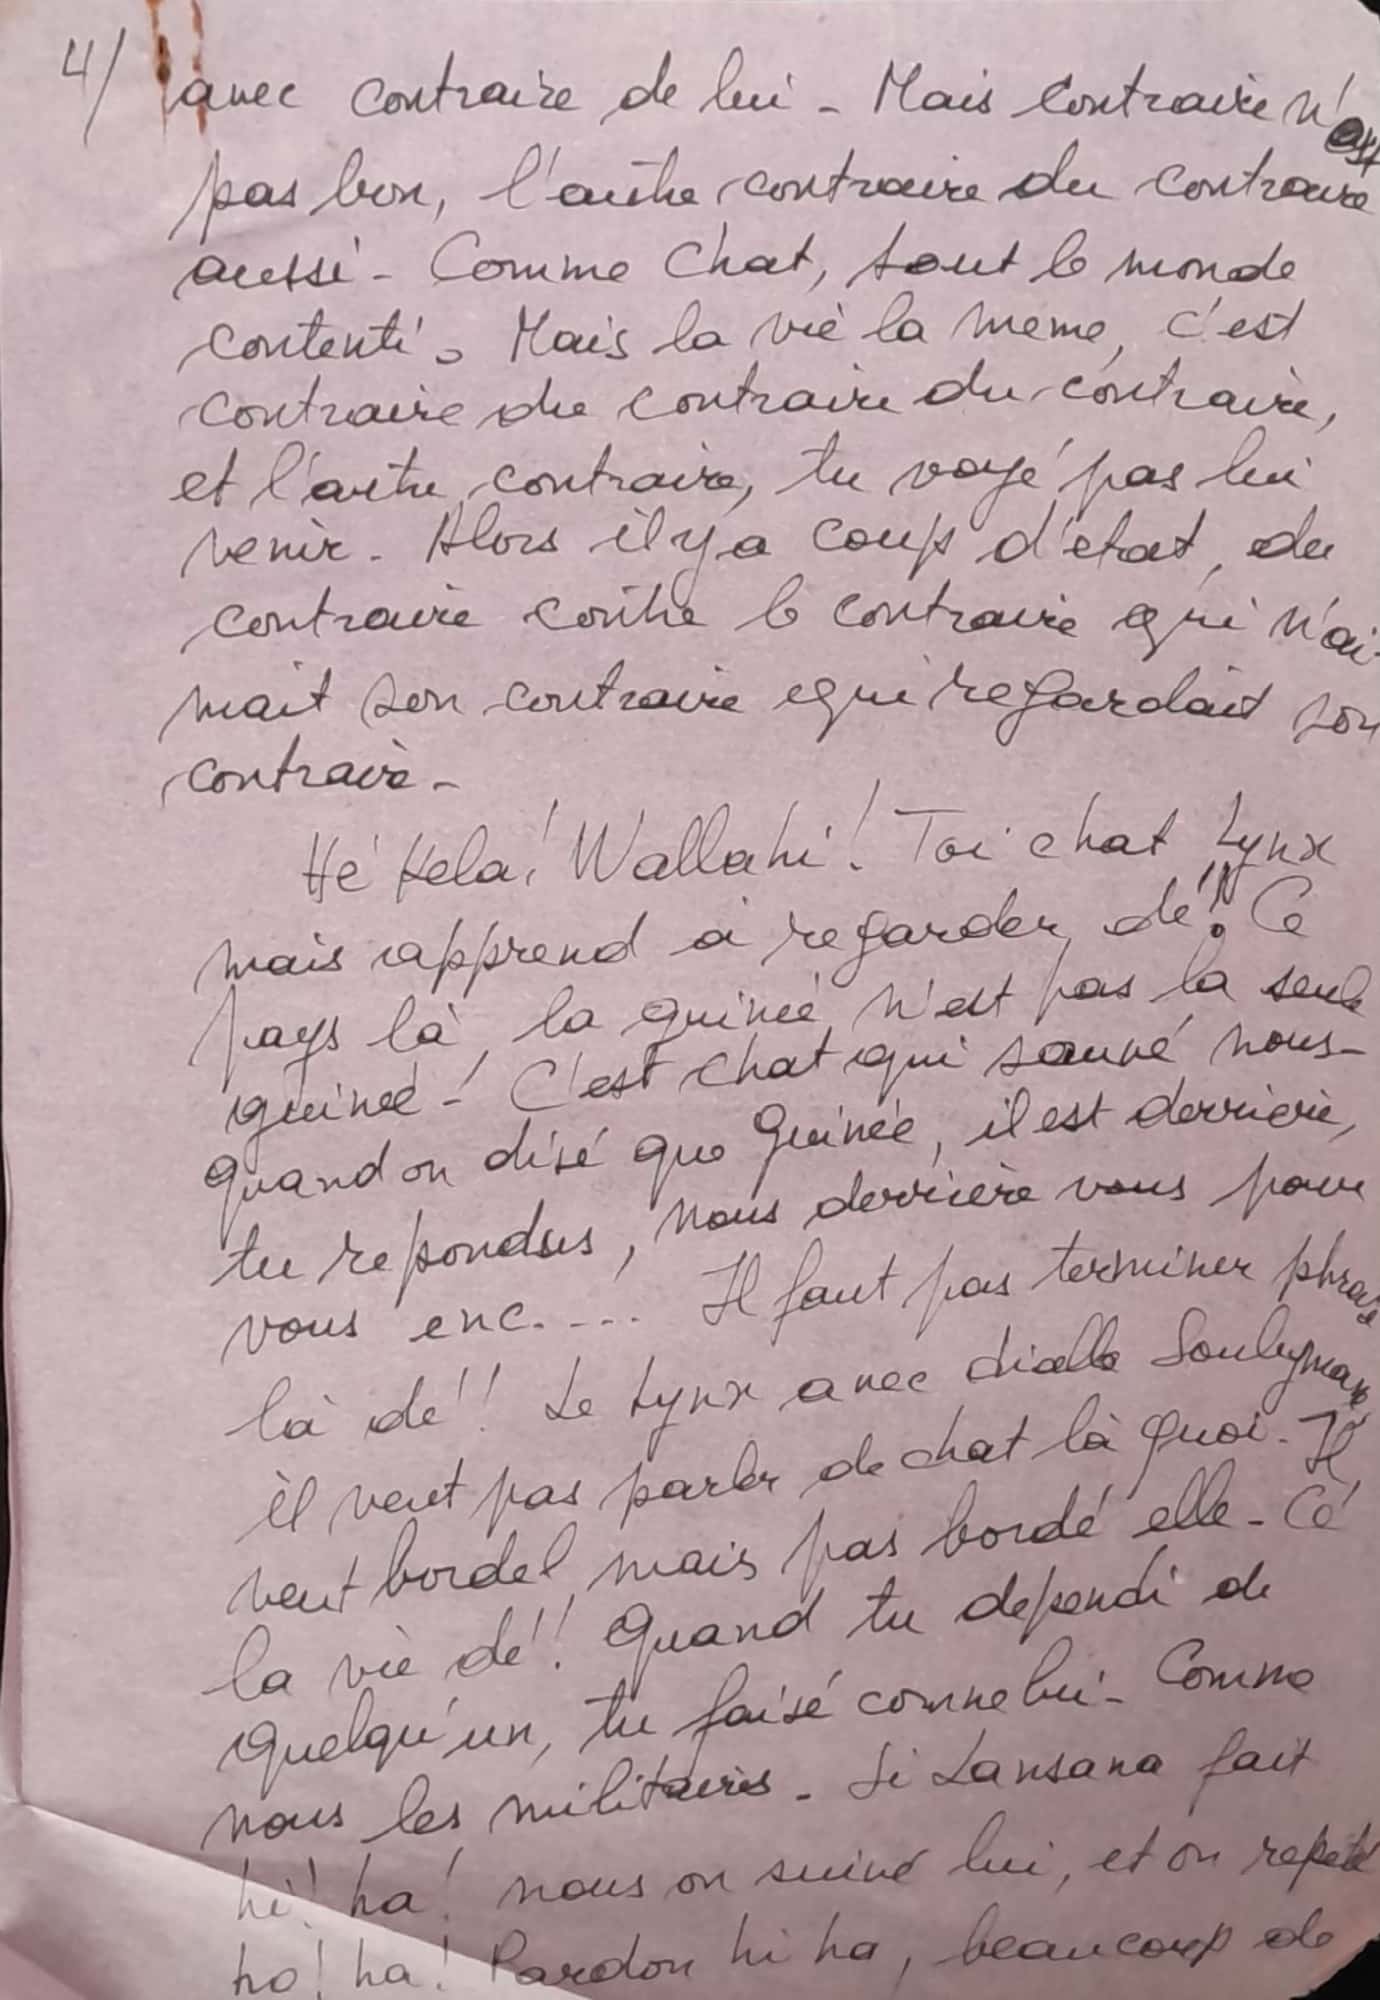 4/ avec contraire de lui - Mais contraire n'est
pas bon, l'autre contraire du contraire
aussi - Comme Chat, tout le monde
contenti. Mais la vie la meme, c'est
contraire du contraire du contraire,
et l'autre contraire, tu voyé pas lui
venir. Alors il y a coup d'etat, du
contraire contre le contraire qui n'ai-
mait son contraire qui regardait son
contraire -
Hé Kela! Wallahi! Toi chat Lynx
mais apprend à regarder dé! Ce
pays là, la guinée n'est pas la seule
guinée! C'est chat qui sauvé nous -
Quand on disé que Guinée, il est derriere,
tu repondus, nous derrière vous pour
vous enc.... Il faut pas terminer phrase
là dé!! Le Lynx avec diallo Souleymane
il veut pas parler de chat là quoi. Il
veut bordel mais pas bordé elle - Cé
la vie dé!! Quand tu dependi de
quelqu'un, tu faisé comme lui - Comme
nous les militaires. Si Lansana fait
hi! ha! nous on suivé lui, et on repeté
ho! ha! Pardon hi ha, beaucoup de